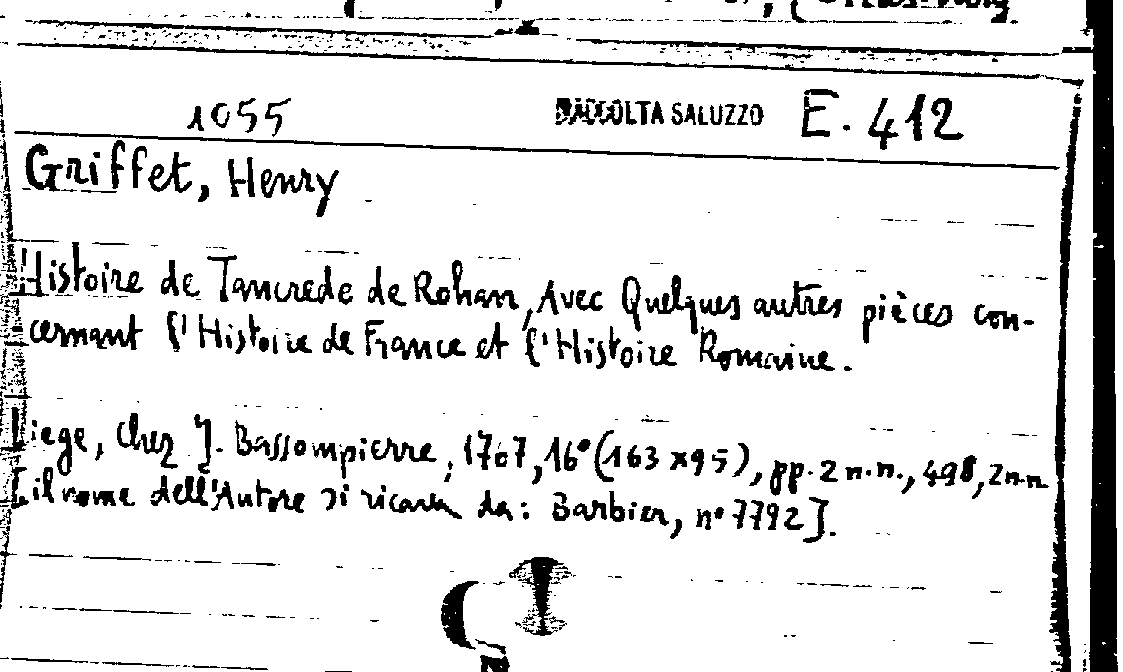 1055 RACCOLTA SALUZZO E. 412
Griffet, Henry
Histoire de Tancrede de Rohan, Avec Quelques autres pièces con-
cernant l'Histoire de France et l'Histoire Romaine.
Liege, chez J. Bassompierre, 1767, 16° (163 x 95), pp. 2 n.n., 498, 2 n.n
[il nome dell'Autore si ricava da: Barbier, n° 7792].